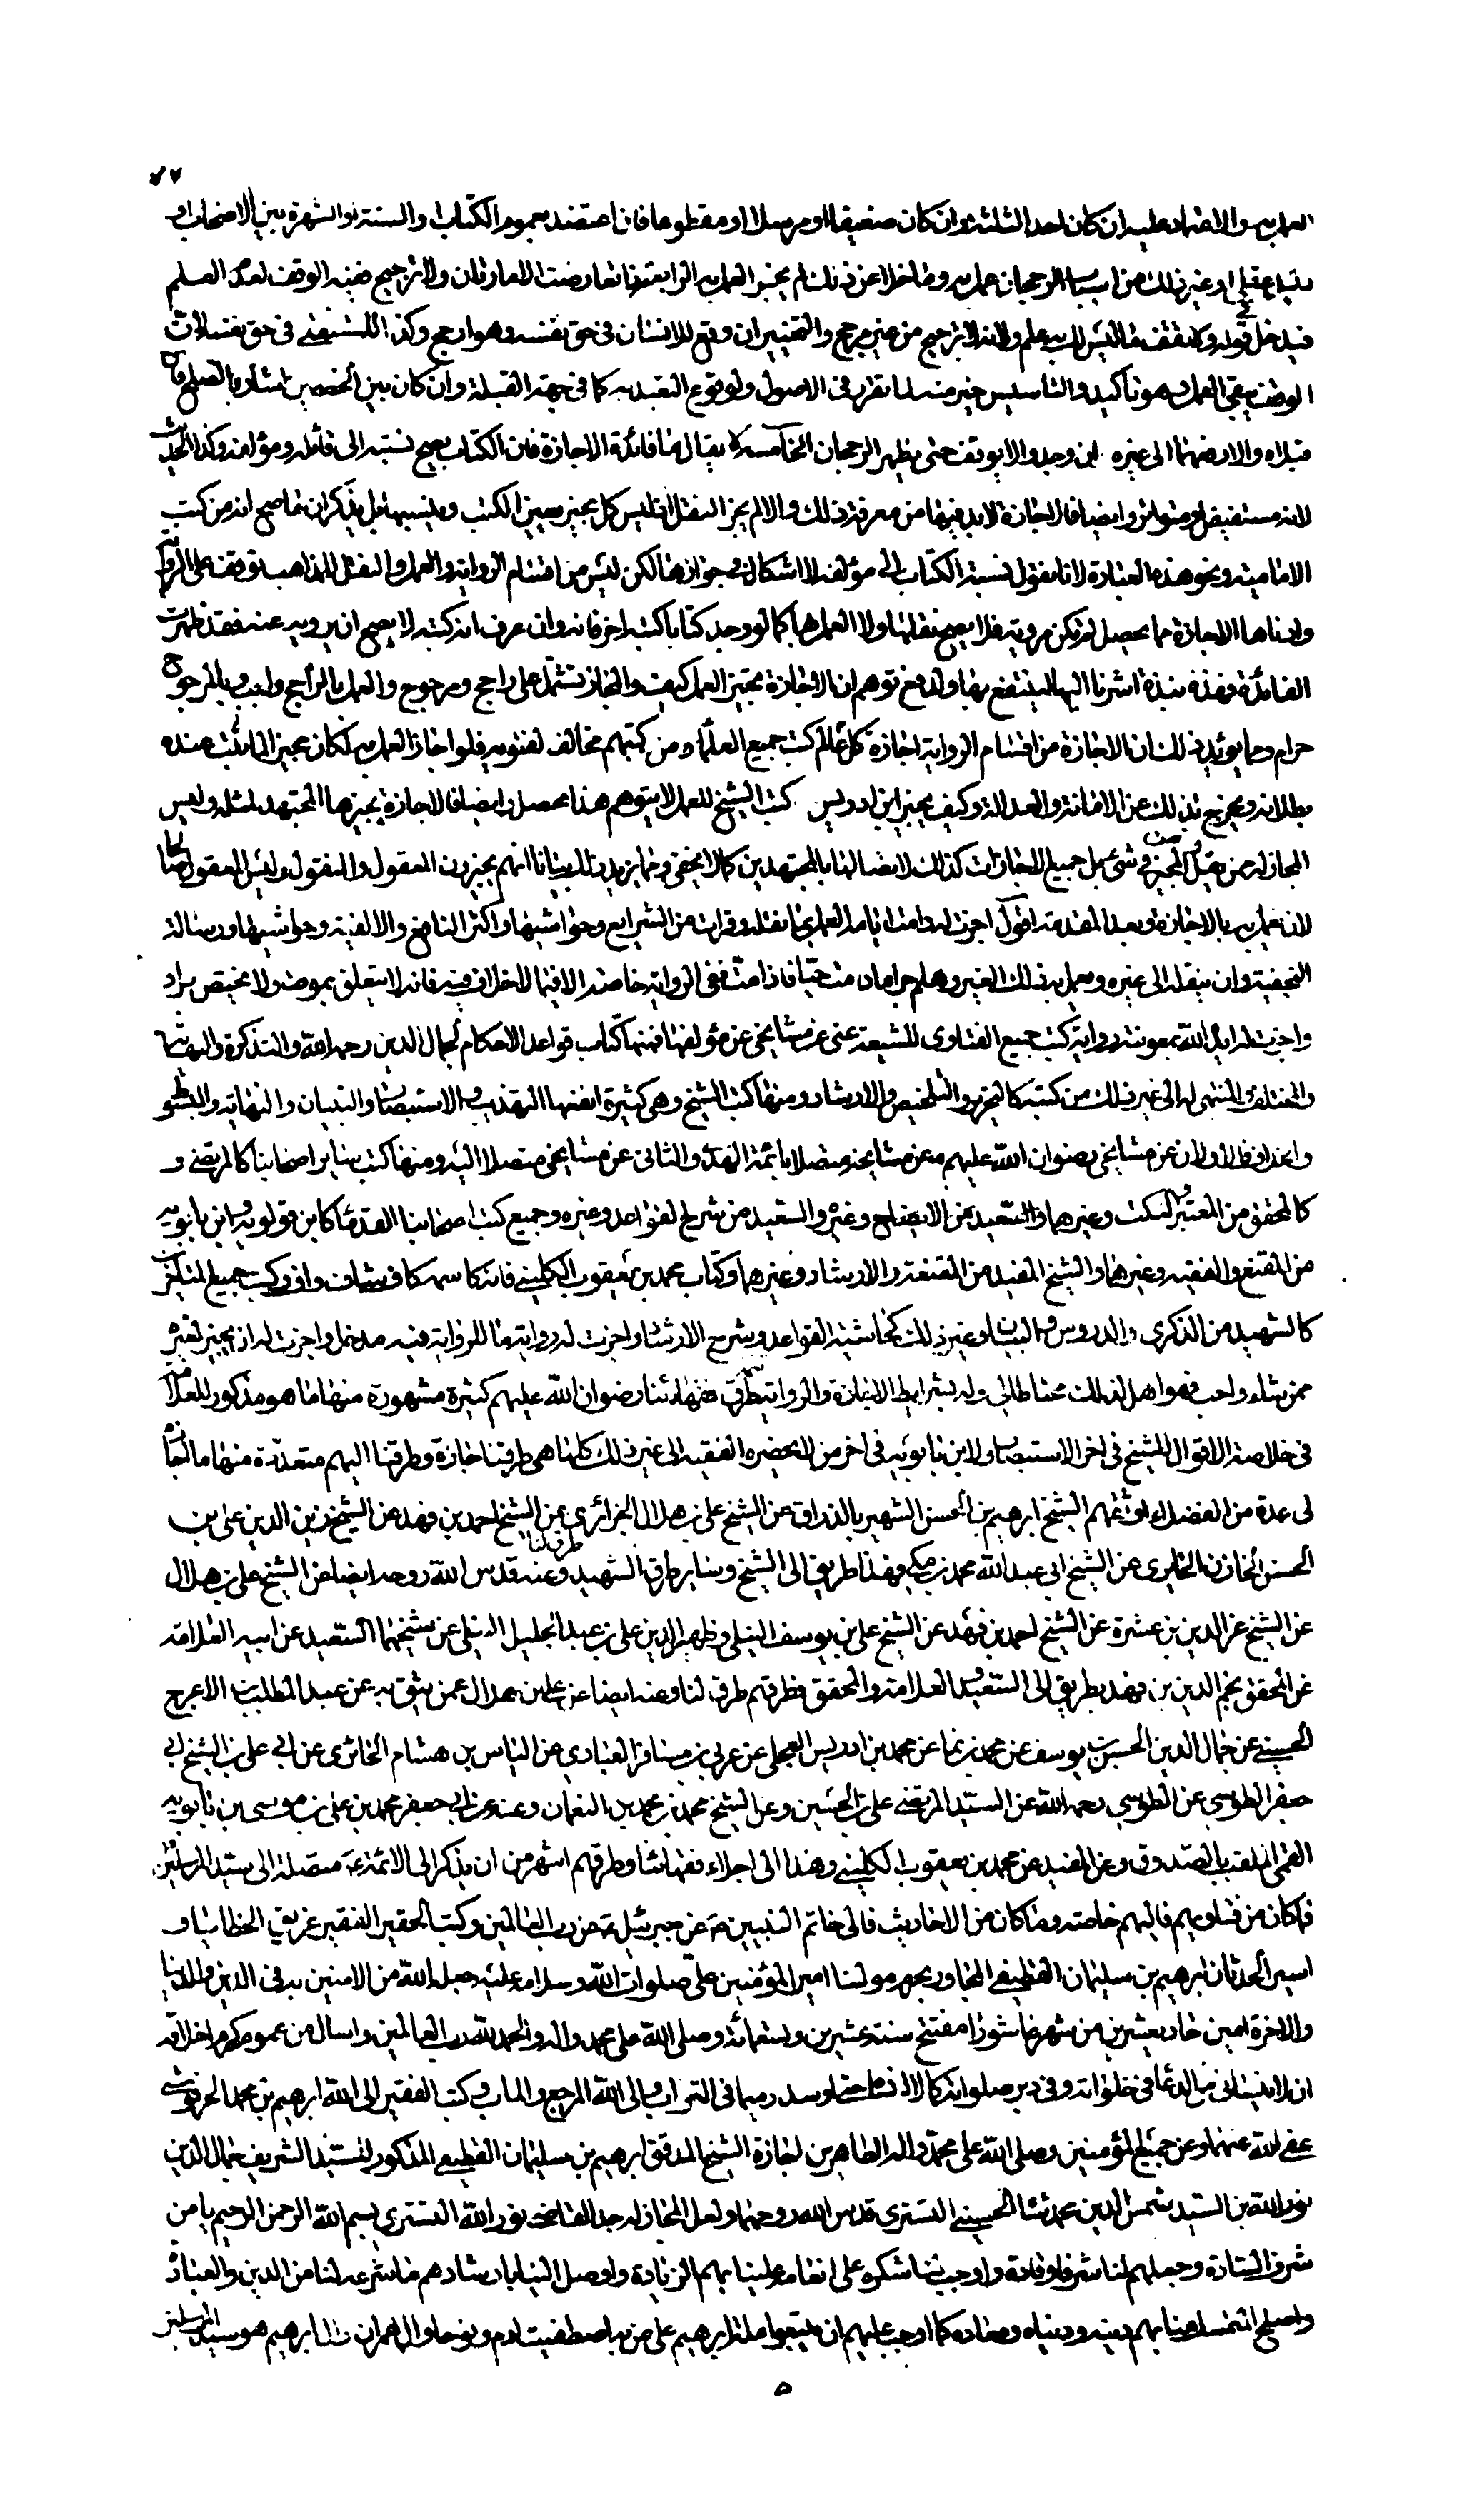 ٧٧
العمل به والاعتماد عليه ان كان احد الثلثة وان كان ضعيفا او مرسلا او مقطوعا فان اعتضد بعموم الكتاب او السنة او الشهرة بين الاصحاب او
بدليل عقلي او غير ذلك من اسباب الرجحان عمل به وما خلا عن ذلك لم يجز العمل به الرابعة اذا تعارضت الامارتان ولا ترجيح ففيه الوقف لعدم العلم
فيدخل في قوله ولا تقف ما ليس لك به علم ولانه لا ترجيح من غير مرجح والتخيير ان وقع للانسان في حق نفسه وهو ارجح وكذا للمستفتي في حق نفسه لان
الوقف يقي العمل وهو تأكيد والتاسيس خير منه لما تقرر في الاصول ولوقوع التعبد به كما في جهة القبلة وان كان بين الخصمين اشار بالصلح فان
قبلاه والا ارضهما الى غيره ان وجد والا توقف حتى يظهر الرجحان الخامسة لا يقال ما فائدة الاجازة فان الكتاب يصح نسبته الى قائله ومؤلفه وكذا الحديث
لانه مستفيض او متواتر وايضا فالاجازة لابد فيها من معرفة ذلك والا لم يجز النقل اذ ليس كل مجيز يعين الكتب وينسبها بل يذكر ان ما صح انه من كتب
الامامية ونحو هذه العبارة لانا نقول نسبة الكتاب الى مؤلفه لا اشكال في جوازها لكن ليس من اقسام الرواية والعمل والنقل للمذاهب توقف على الرواية
وادناها الاجازة فما لم يحصل لم تكن مروية فلا يصح نقلها ولا العمل بها كما لو وجد كتابا كتبه اخر فانه وان عرف انه كتبه لا يصح ان يرويه عنه فقد ظهرت
الفائدة فهذه نبذة اشرنا اليها لينتفع بها ولدفع توهم ان الاجازة تجيز العمل كيف والمجاز تشتمل على راجح ومرجوح والعمل بالراجح واجب وبالمرجوح
حرام ومما يؤيد ذلك ان الاجازة من اقسام الرواية اجازة كل عالم كتب جميع العلماء ومن كتبهم مخالف لفتويه فلو اجاز العمل به لكان مجيزا لما يثبت عنده
بطلانه ويخرج بذلك عن الامانة والعدالة وكيف يجيز ابن ادريس كتب الشيخ للعمل لا يتوهم هذا محصل وايضا فالاجازة يجيزها المجتهد لمثله وليس
المجاز له ممن يقبل قول المجيز في شئ بل جميع الاجازات كذلك لاتصالها بالمجتهدين كما لا يخفى ومما يزيد ذلك بيانا انهم يجيزون المعقول والمنقول وليس المعقول مما
لانه يعمل به بالاجازة وبعد المقدمة اقول اجزت له دامت ايامه العمل بما نقله وقرات من الشرايع وحواشيها واكثر النافع والالفية وحواشيها ورسالة
النجفية وان ينقله الى غيره ويعمل به ذلك الغير وهلم جرا ما دمت حيا فاذا مت ففي الرواية خاصة الا فيما لا خلاف فيه فانه لا يتعلق بموضع ولا يختص براد
واجزت له ايده الله بمعونته رواية كتب جميع الفتاوى للشيعة عني عن مشايخي عن مؤلفها فمنها كتاب قواعد الاحكام لجمال الدين رحمه الله والتذكرة والنهاية
والمختلف والمنتهى له الى غير ذلك من كتبه كالتحرير والتلخيص والارشاد ومنها كتب الشيخ وهي كثيرة انفعها التهذيب والاستبصار والتبيان والنهاية والمبسوط
والخلاف فالاولان عن مشايخي رضوان الله عليهم وعن مشايخه متصلا بائمة الهدى والثاني عن مشايخي متصلا اليه ومنها كتب ساير اصحابنا كالمرتضى و
كالمحقق من المعتبر والنكت وغيرهما والسعيد من الايضاح وغيره والسعيد من شرح القواعد وغيره وجميع كتب اصحابنا القدماء كابن قولويه وابن بابويه
من المقنع والفقيه وغيرهما والشيخ المفيد من المقنعة والارشاد وغيرهما وكتاب محمد بن يعقوب الكليني فانه كاسمه كاف شاف واف وكتب جميع المتاخرين
كالشهيد من الذكرى والدروس والبيان وغير ذلك كحاشية القواعد وشرح الارشاد واجزت له رواية ما للرواية فيه مدخل واجزت له ان يجيز لغيره
ممن شاء واحب فهو اهل لذلك محتاطا لي وله بشرايط الاجازة والرواية وطرقي الى فقهائنا رضوان الله عليهم كثيرة مشهورة منها ما هو مذكور للعلامة
في خلاصة الاقوال وللشيخ في اخر الاستبصار ولابن بابويه في اخر من لا يحضره الفقيه الى غير ذلك كلها هي طرقنا اجازة وطرقنا اليهم متعددة منها ما اجازه
لي عدة من الفضلاء اوثقهم الشيخ ابرهيم بن الحسن الشهير بالذراق عن الشيخ علي بن هلال الجزائري عن الشيخ احمد بن فهد عن الشيخ زين الدين علي بن
الحسن الخازن الحايري عن الشيخ ابي عبد الله محمد بن مكي فهذا طريق الى الشيخ وساير طرق الشهيد طرق لنا وعنه قدس الله روحه ايضا عن الشيخ علي بن هلال
عن الشيخ عز الدين بن عشرة عن الشيخ احمد بن فهد عن الشيخ علي بن يوسف النيلي وظهير الدين علي بن عبد الجليل النيلي عن شيخهما السعيد عن ابيه العلامة
عن المحقق نجم الدين بن فهد طريق الى السعيد والعلامة والمحقق وطرقهم طرق لنا وعنه ايضا عن علي بن هلال عمن يثق به عن عبد المطلب الاعرج
الحسيني عن جمال الدين الحسن بن يوسف عن محمد بن نما عن محمد بن ادريس العجلي عن عربي بن مسافر العبادي عن الياس بن هشام الحائري عن ابي علي بن الشيخ ابي
جعفر الطوسي عن الطوسي رحمه الله عن السيد المرتضى علي بن الحسين وعن الشيخ محمد بن محمد بن النعمان وعنه عن ابي جعفر محمد بن علي بن موسى بن بابويه
القمي الملقب بالصدوق وعن المفيد عن محمد بن يعقوب الكليني وهذا الى اجلاء فقهائنا وطرقهم اشهر من ان يذكر الى الائمة ع متصلة الى سيد المرسلين
فما كان من فتاويهم فاليهم خاصة وما كان من الاحاديث فالى خاتم النبيين ص عن جبرئيل ع عن رب العالمين وكتب الحقير الفقير غريق الخطايا و
اسير الحدثان ابرهيم بن سليمان القطيفي المجاور بحرم مولنا امير المؤمنين علي صلوات الله وسلامه عليه جعله الله من الامنين به في الدين والدنيا
والاخرة امين حاد بعشرين من شهر عاشورا مفتتح سنة عشرين وتسعمائة وصلى الله على محمد واله والحمد لله رب العالمين واسال من عموم كرم اخلاقه
ان لا ينساني من الدعاء في خلواته وفي دبر صلواته كما لا انساه حتى اوسد رميما في التراب والى الله المرجع والماب وكتب الفقير الى الله ابرهيم بن محمد الحرفوشي
عفى الله عنهما وعن جميع المؤمنين وصلى الله على محمد واله الطاهرين اجازة الشيخ المدقق ابرهيم بن سليمان القطيفي المذكور للسيد الشريف جمال الدين
نور الله بن السيد شمس الدين محمد شاه الحسيني التستري قدس الله روحهما ولعل المجاز له جد القاضي نور الله التستري بسم الله الرحمن الرحيم يا من
شرف السادة وجعلهم لنا شرفا وقادة واوجب لنا شكره على انعامه علينا بهم الزيادة واوصل الينا بارشادهم ما شرعه لنا من الدين والعبادة
واصلح لمن تمسك منا بهم دينه ودنياه ومعاده كما اوجب عليهم ان يتبعوا ملة ابرهيم على من به اصطفيت ادم ونوحا وال عمران وال ابرهيم هو سيد المرسلين